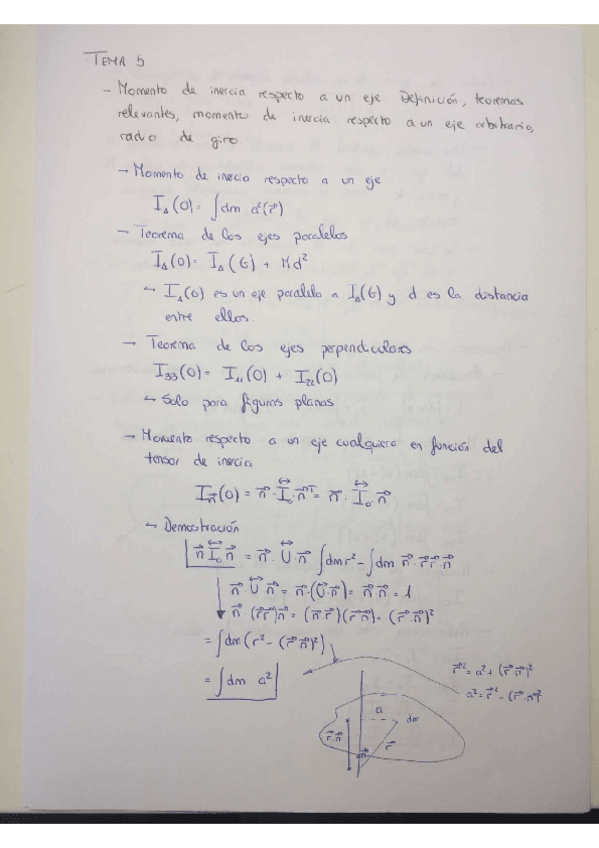 TEMA 5
- Momento de inercia respecto a un eje Definición, teoremas
relevantes, momento de inercia respecto a un eje arbitrario,
radio de giro
→ Momento de inercia respecto a un eje
I_Δ(O) = ∫dm a²(r⃗)
→ Teorema de los ejes paralelos
I_Δ(O) = I_Δ(G) + Md²
↳ I_Δ(O) es un eje paralelo a I_Δ(G) y d es la distancia
entre ellos.
→ Teorma de los ejes perpendiculars
I₃₃(O) = I₁₁(O) + I₂₂(O)
↳ Solo para figuras planas
→ Momento respecto a un eje cualquiera en función del
tensor de inercia
I_n⃗(O) = n⃗ · I⃡₀ · n⃗ᵀ = n⃗ · I⃡₀ · n⃗
↳ Demostración
n⃗ I⃡₀ n⃗ = n⃗ · U⃡ · n⃗ ∫dm r² - ∫dm n⃗ · r⃗ r⃗ · n⃗
n⃗ · U⃡ · n⃗ = n⃗ · (U⃡ · n⃗) = n⃗ n⃗ = 1
n⃗ · (r⃗ r⃗) n⃗ = (n⃗ r⃗)(r⃗ n⃗) = (r⃗ n⃗)²
= ∫dm (r² - (r⃗ n⃗)²)
= ∫dm a²
r⃗² = a² + (r⃗ n⃗)²
a² = r⃗² - (r⃗ n⃗)²
a
dm
r⃗ n⃗
r⃗